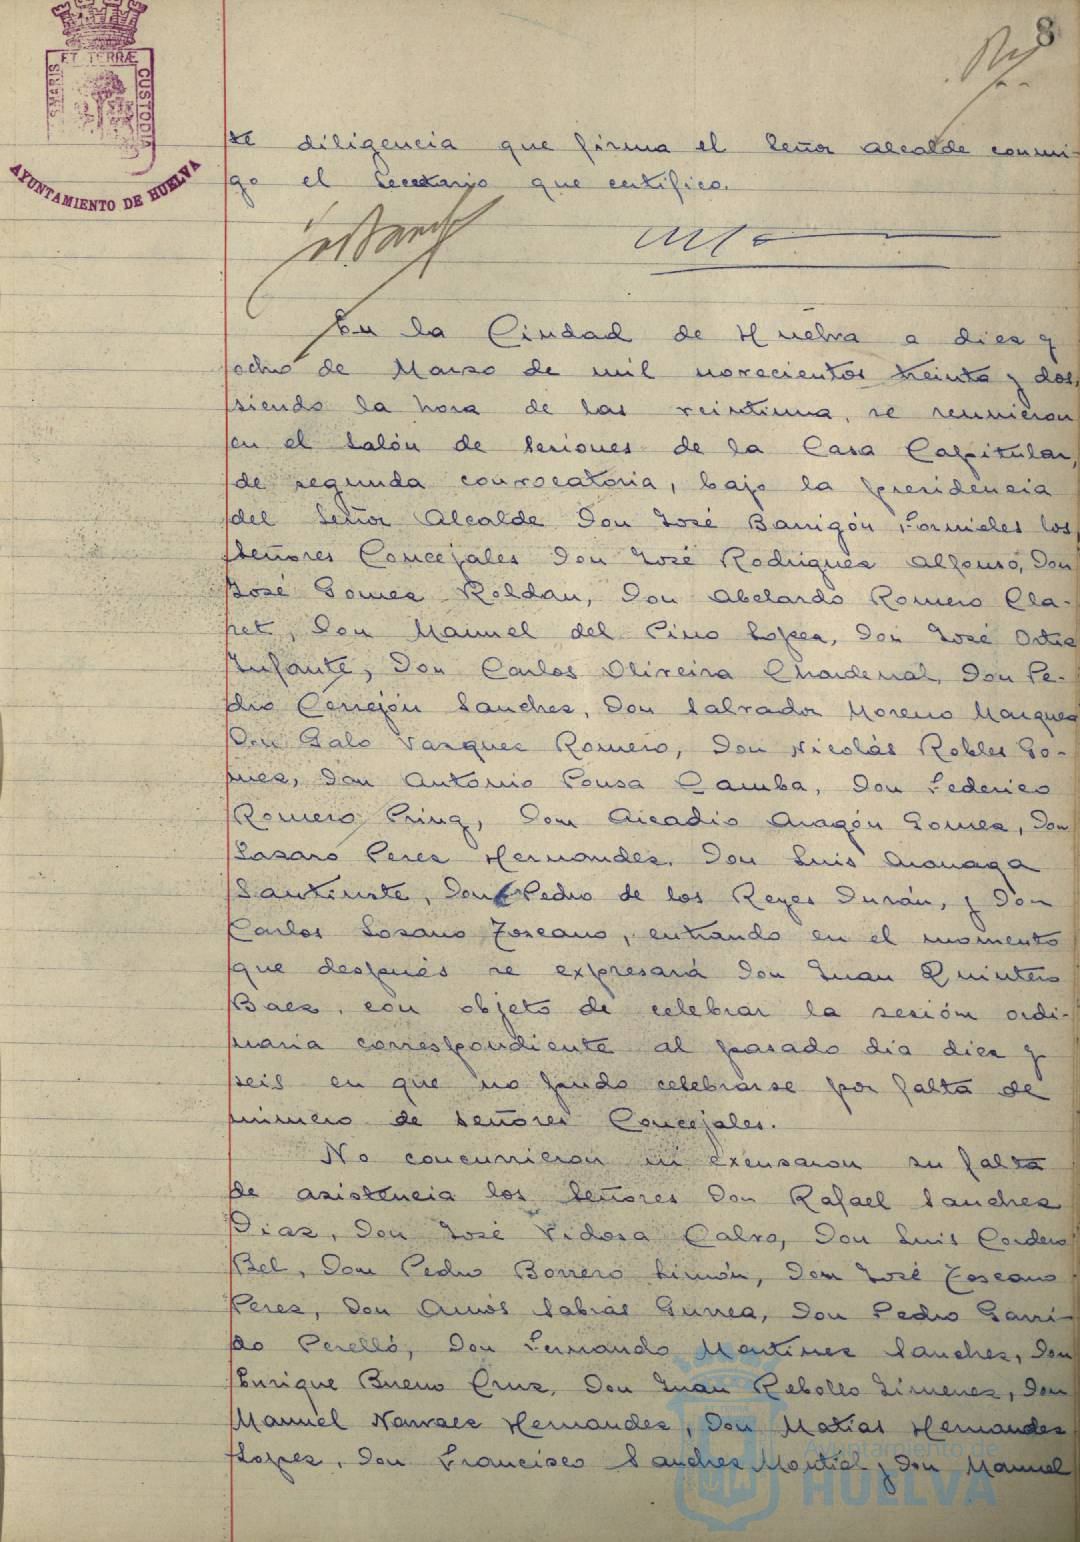 8
MARIS
ET TERRÆ
CUSTODIA
AYUNTAMIENTO DE HUELVA
te diligencia que firma el Señor Alcalde conmi-
go el Secretario que certifico.
En la Ciudad de Huelva a diez y
ocho de Marzo de mil novecientos treinta y dos,
siendo la hora de las veintiuna, se reunieron
en el Salón de Sesiones de la Casa Capitular,
de segunda convocatoria, bajo la presidencia
del Señor Alcalde Don José Barrigón Fornieles los
Señores Concejales Don José Rodriguez Alfonso, Don
José Gomez Roldan, Don Abelardo Romero Cla-
ret, Don Manuel del Pino Lopez, Don José Ortiz
Infante, Don Carlos Oliveira Chardenal, Don Pe-
dro Cerrejón Sanchez, Don Salvador Moreno Marquez
Don Galo Vazquez Romero, Don Nicolás Robles Go-
mez, Don Antonio Pousa Camba, Don Federico
Romero Pring, Don Arcadio Aragón Gomez, Don
Lazaro Perez Hernandez, Don Luis Aronaga
Santiuste, Don Pedro de los Reyes Durán, y Don
Carlos Lozano Toscano, entrando en el momento
que después se expresará Don Juan Quintero
Baez, con objeto de celebrar la sesión ordi-
naria correspondiente al pasado día diez y
seis en que no pudo celebrarse por falta de
número de Señores Concejales.
No concurrieron ni excusaron su falta
de asistencia los Señores Don Rafael Sanchez
Diaz, Don José Vidosa Calvo, Don Luis Cordero
Bel, Don Pedro Borrero Limón, Don José Toscano
Perez, Don Amós Sabrás Gurrea, Don Pedro Garri-
do Perelló, Don Fernando Martinez Sanchez, Don
Enrique Bueno Cruz, Don Juan Rebollo Jimenez, Don
Manuel Narvaez Hernandez, Don Matías Hernandez
Lopez, Don Francisco Sanchez Montiel y Don Manuel
Ayuntamiento de
HUELVA